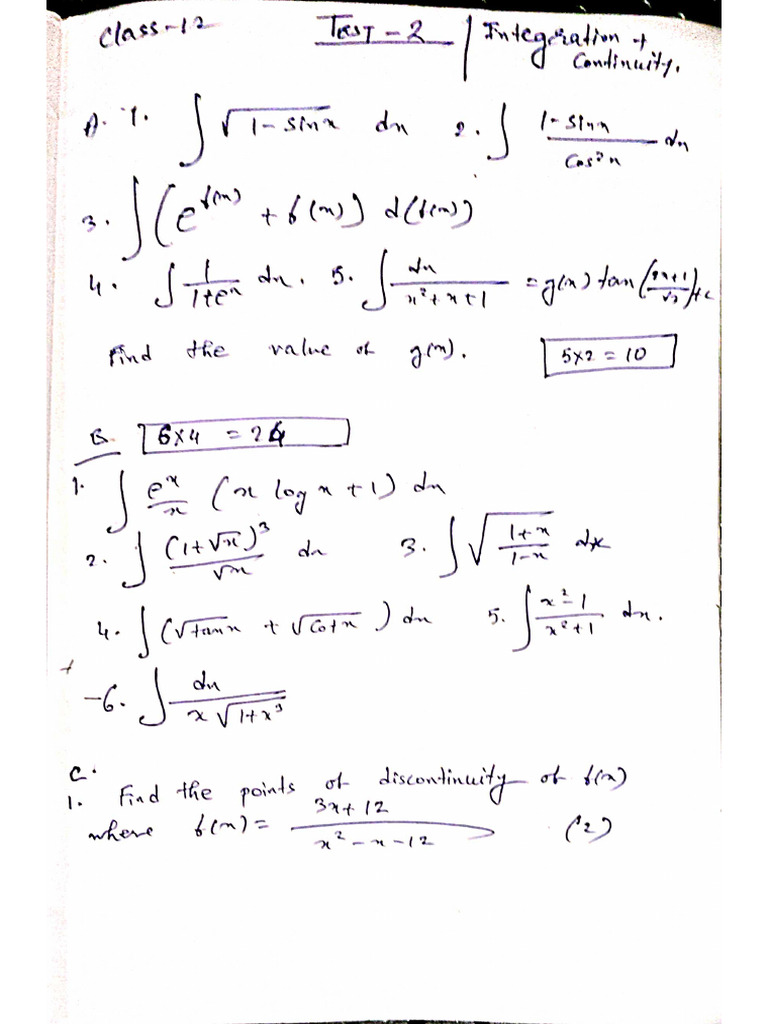 class-12 TEST-2 | Integeration + Continuity.
A. 1. ∫ √(1-sinx) dx 2. ∫ (1-sinx)/(cos²x) dx
3. ∫ (e^f(x) + f(x)) d(f(x))
4. ∫ 1/(1+e^x) dx. 5. ∫ dx/(x²+x+1) = g(x) tan((2x+1)/√3)+c
Find the value of g(x). 5x2 = 10
B. 6x4 = 24
1. ∫ e^x/x (x log x + 1) dx
2. ∫ (1+√x)³/√x dx 3. ∫ √((1+x)/(1-x)) dx
4. ∫ (√tanx + √cotx) dx 5. ∫ (x²-1)/(x²+1) dx.
-6. ∫ dx/(x√(1+x³))
C.
1. Find the points of discontinuity of f(x)
where f(x) = (3x+12)/(x²-x-12) (2)